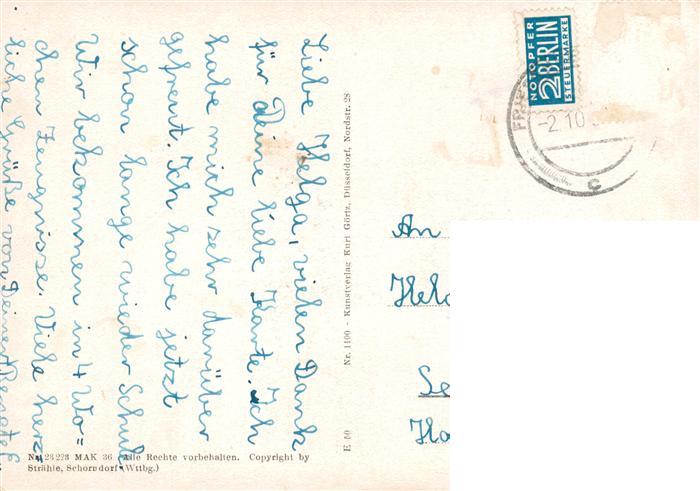 Liebe Helga, vielen Dank
für Deine liebe Karte. Ich
habe mich sehr darüber
gefreut. Ich habe jetzt
schon lange wieder Schule
Wir bekommen in 4 Wo=
chen Zeugnisse. Viele herz=
liche Grüße von Deiner
E 50   Nr. 1100 - Kunstverlag Kurt Görtz, Düsseldorf, Nordstr. 28
NOTOPFER
2 BERLIN
STEUERMARKE
-2.10
c
An
Nr. 23 223 MAK 36 Alle Rechte vorbehalten. Copyright by
Strähle, Schorndorf (Wttbg.)